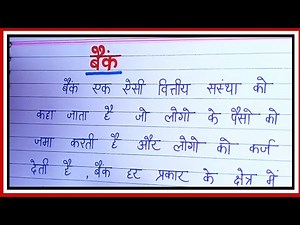 बैंक
बैंक एक ऐसी वित्तीय सस्था को
कहा जाता है जो लोगो के पैसो को
जमा करती है और लोगो को कर्ज
देती है , बैंक हर प्रकार के क्षेत्र में